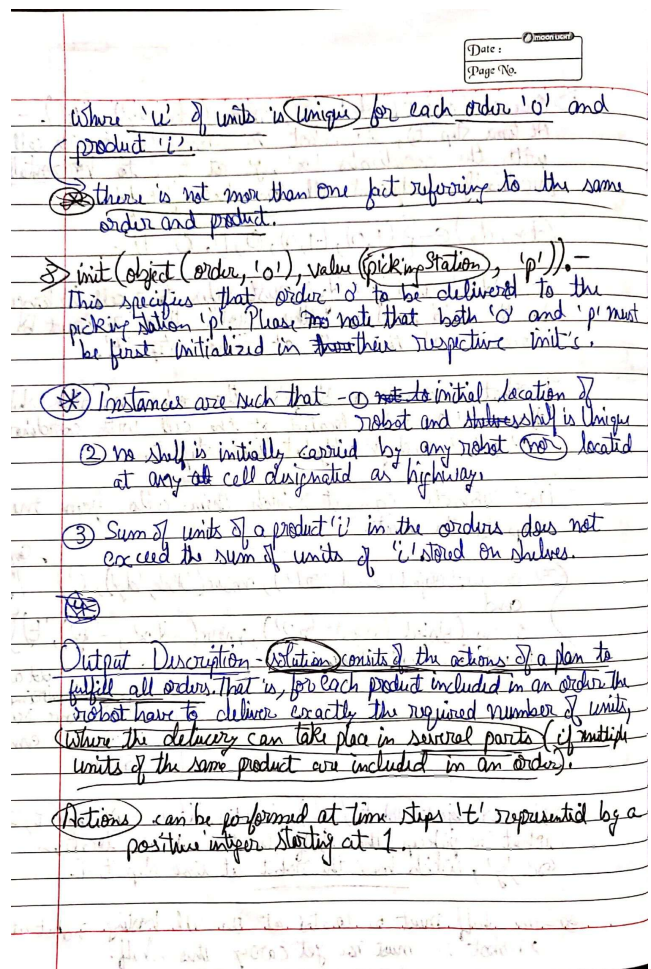 MOON LIGHT
Date :
Page No.
where 'u' of units is unique for each order 'o' and
product 'i'.
there is not more than one fact referring to the same
order and product.
init (object (order, 'o'), value (pickingStation, 'p')). –
This specifies that order 'o' to be deliverd to the
picking station 'p'. Please no note that both 'o' and 'p' must
be first initialized in their respective init's.
* Instances are such that - ① not to initial location of
robot and shelf is Unique
② no shelf is initially carried by any robot nor located
at any cell designated as highway.
③ Sum of units of a product 'i' in the orders does not
exceed the sum of units of 'i' stored on shelves.
Output Discription - solution consits of the actions of a plan to
fulfill all orders. That is, for each product included in an order the
robot have to deliver exactly the required number of units,
where the delivery can take place in several parts (if multiple
units of the same product are included in an order).
Actions can be performed at time steps 't' represented by a
positive integer starting at 1.